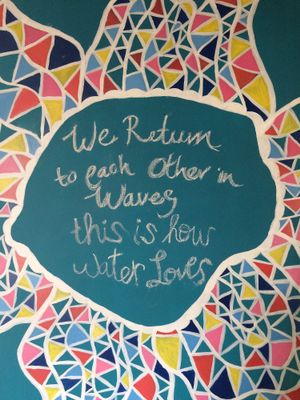 We Return
to each other in
Waves
this is how
Water Loves